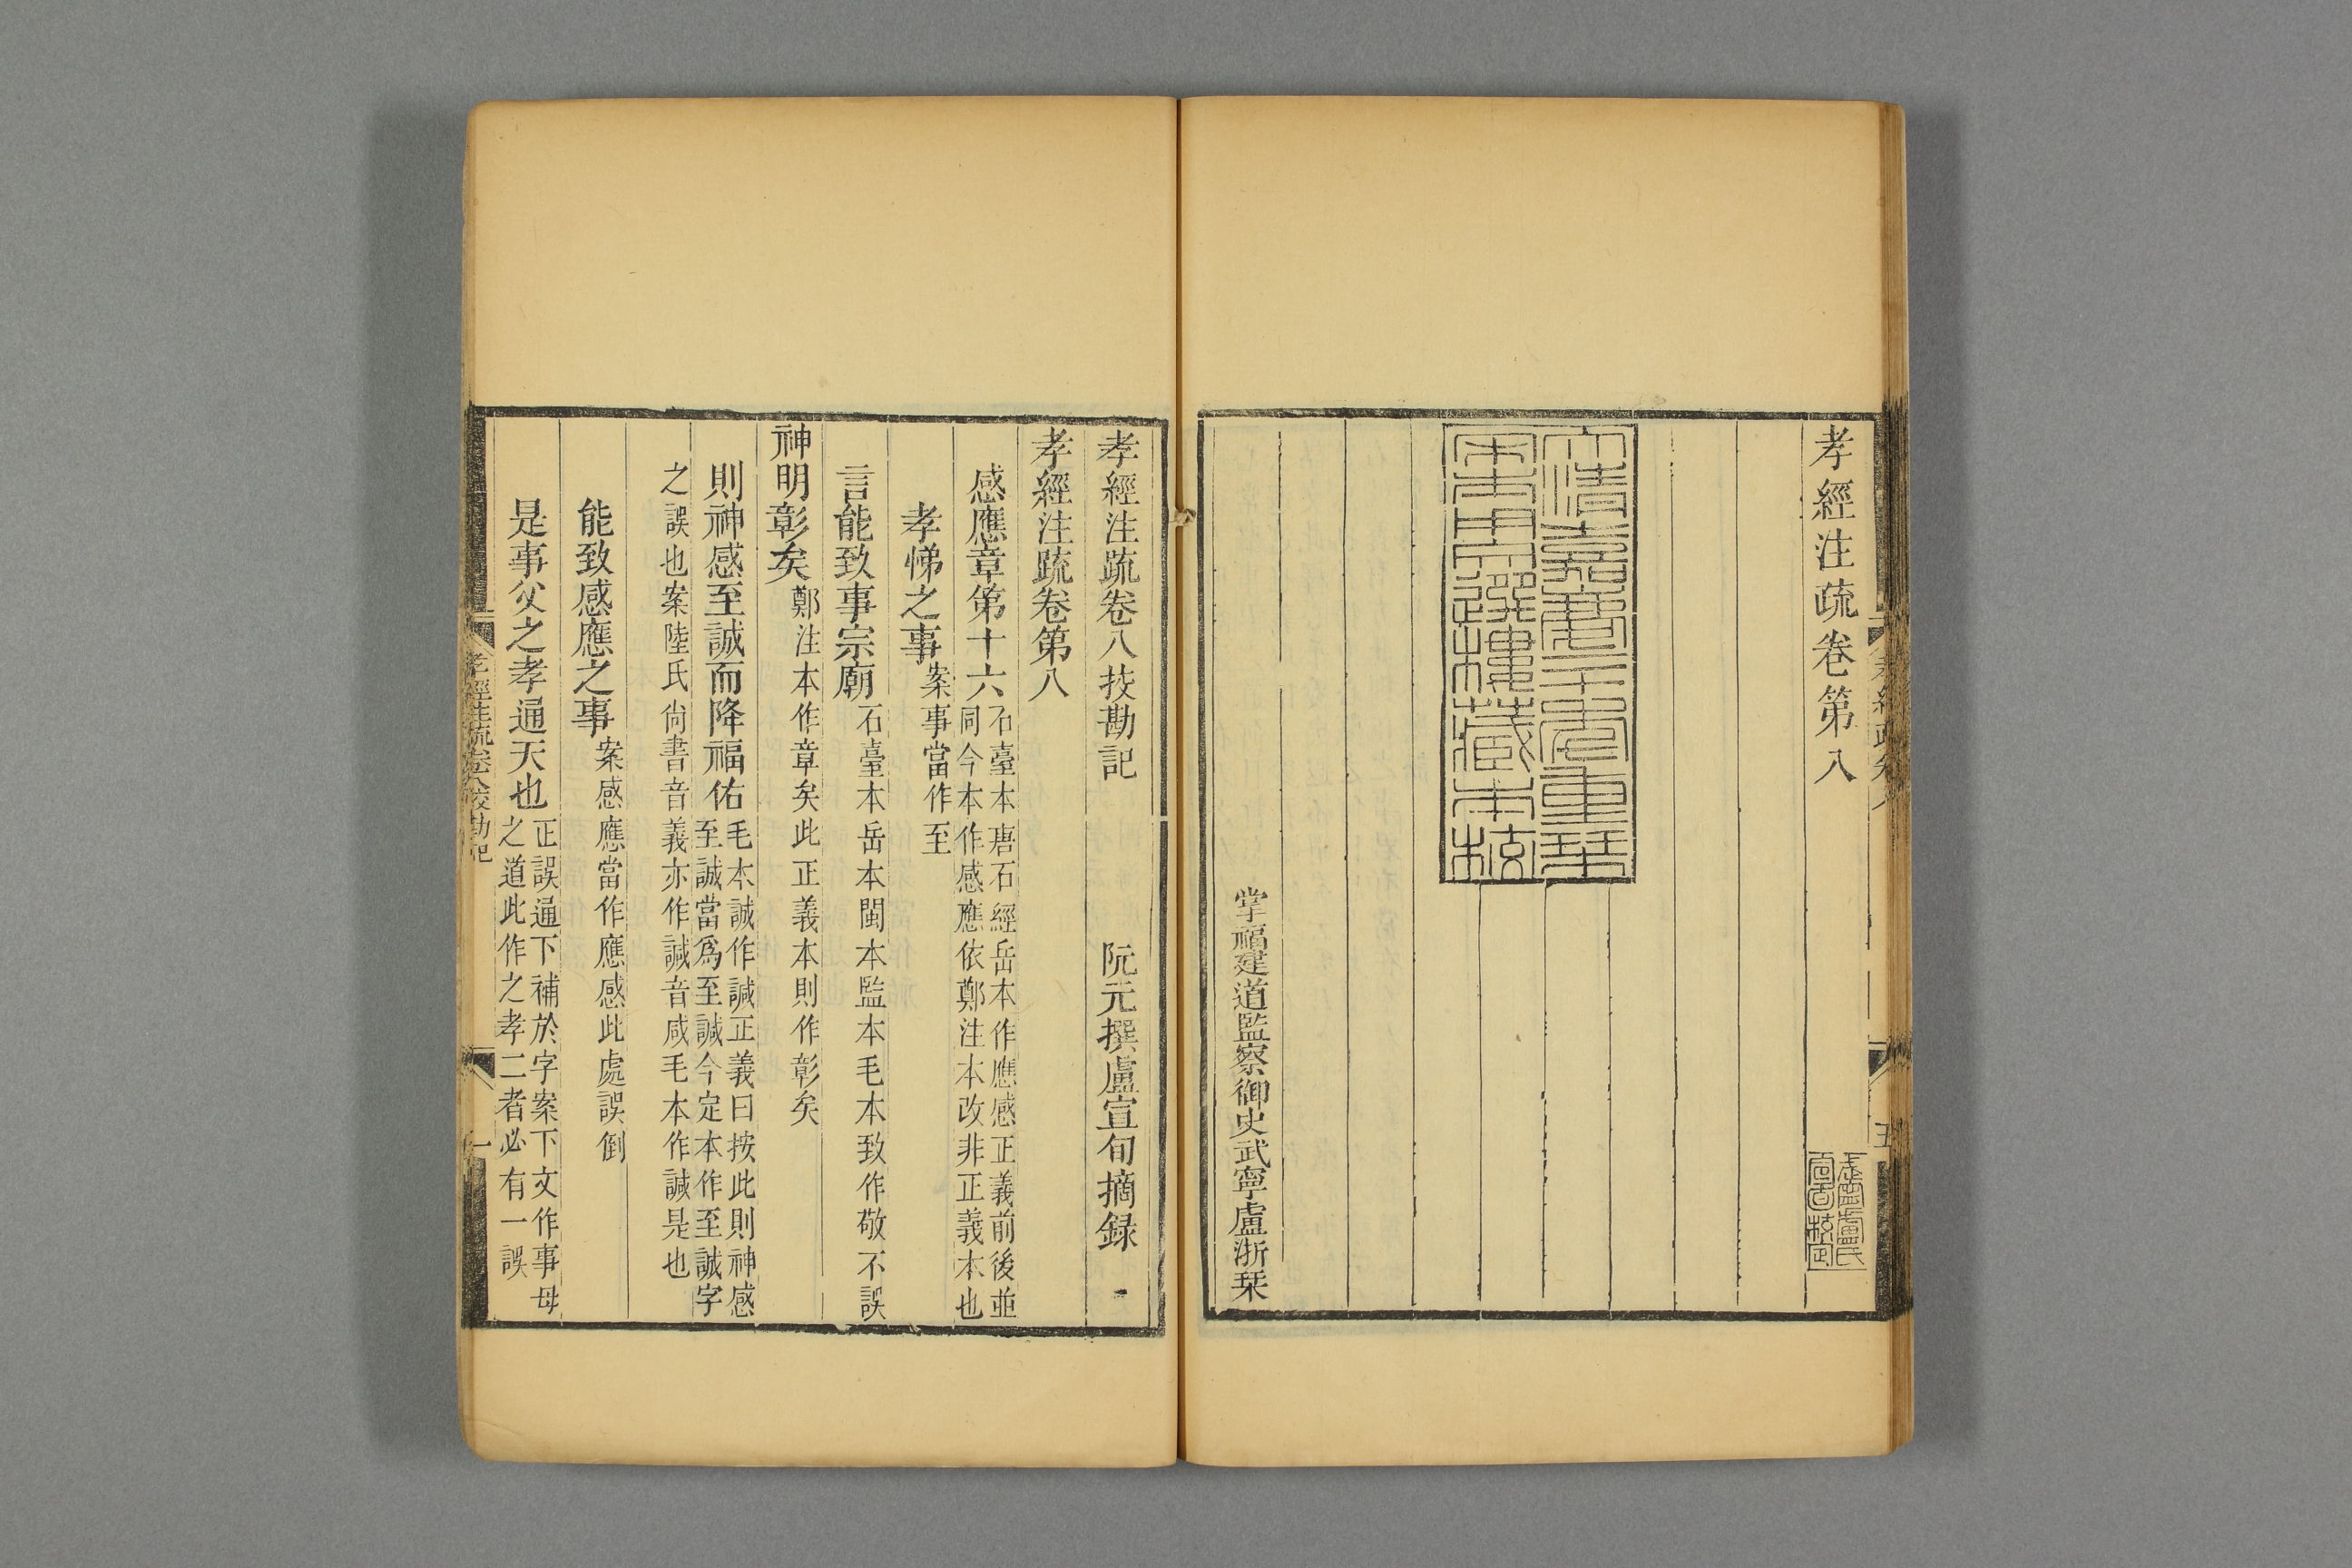 孝經注疏卷第八
大清嘉慶二十年重栞
宋本用文選樓藏本校
掌福建道監察御史武寧盧浙栞
孝經注疏卷八挍勘記　阮元撰盧宣旬摘録
孝經注疏卷第八
感應章第十六石臺本唐石經岳本作應感正義前後並
同今本作感應依鄭注本改非正義本也
孝悌之事案事當作至
言能致事宗廟石臺本岳本閩本監本毛本致作敬不誤
神明彰矣鄭注本作章矣此正義本則作彰矣
則神感至誠而降福佑毛本誠作諴正義曰按此則神感
至誠當爲至諴今定本作至誠字
之誤也案陸氏尚書音義亦作諴音咸毛本作諴是也
能致感應之事案感應當作應感此處誤倒
是事父之孝通天也正誤通下補於字案下文作事母
之道此作之孝二者必有一誤
孝經注疏卷八挍勘記
一